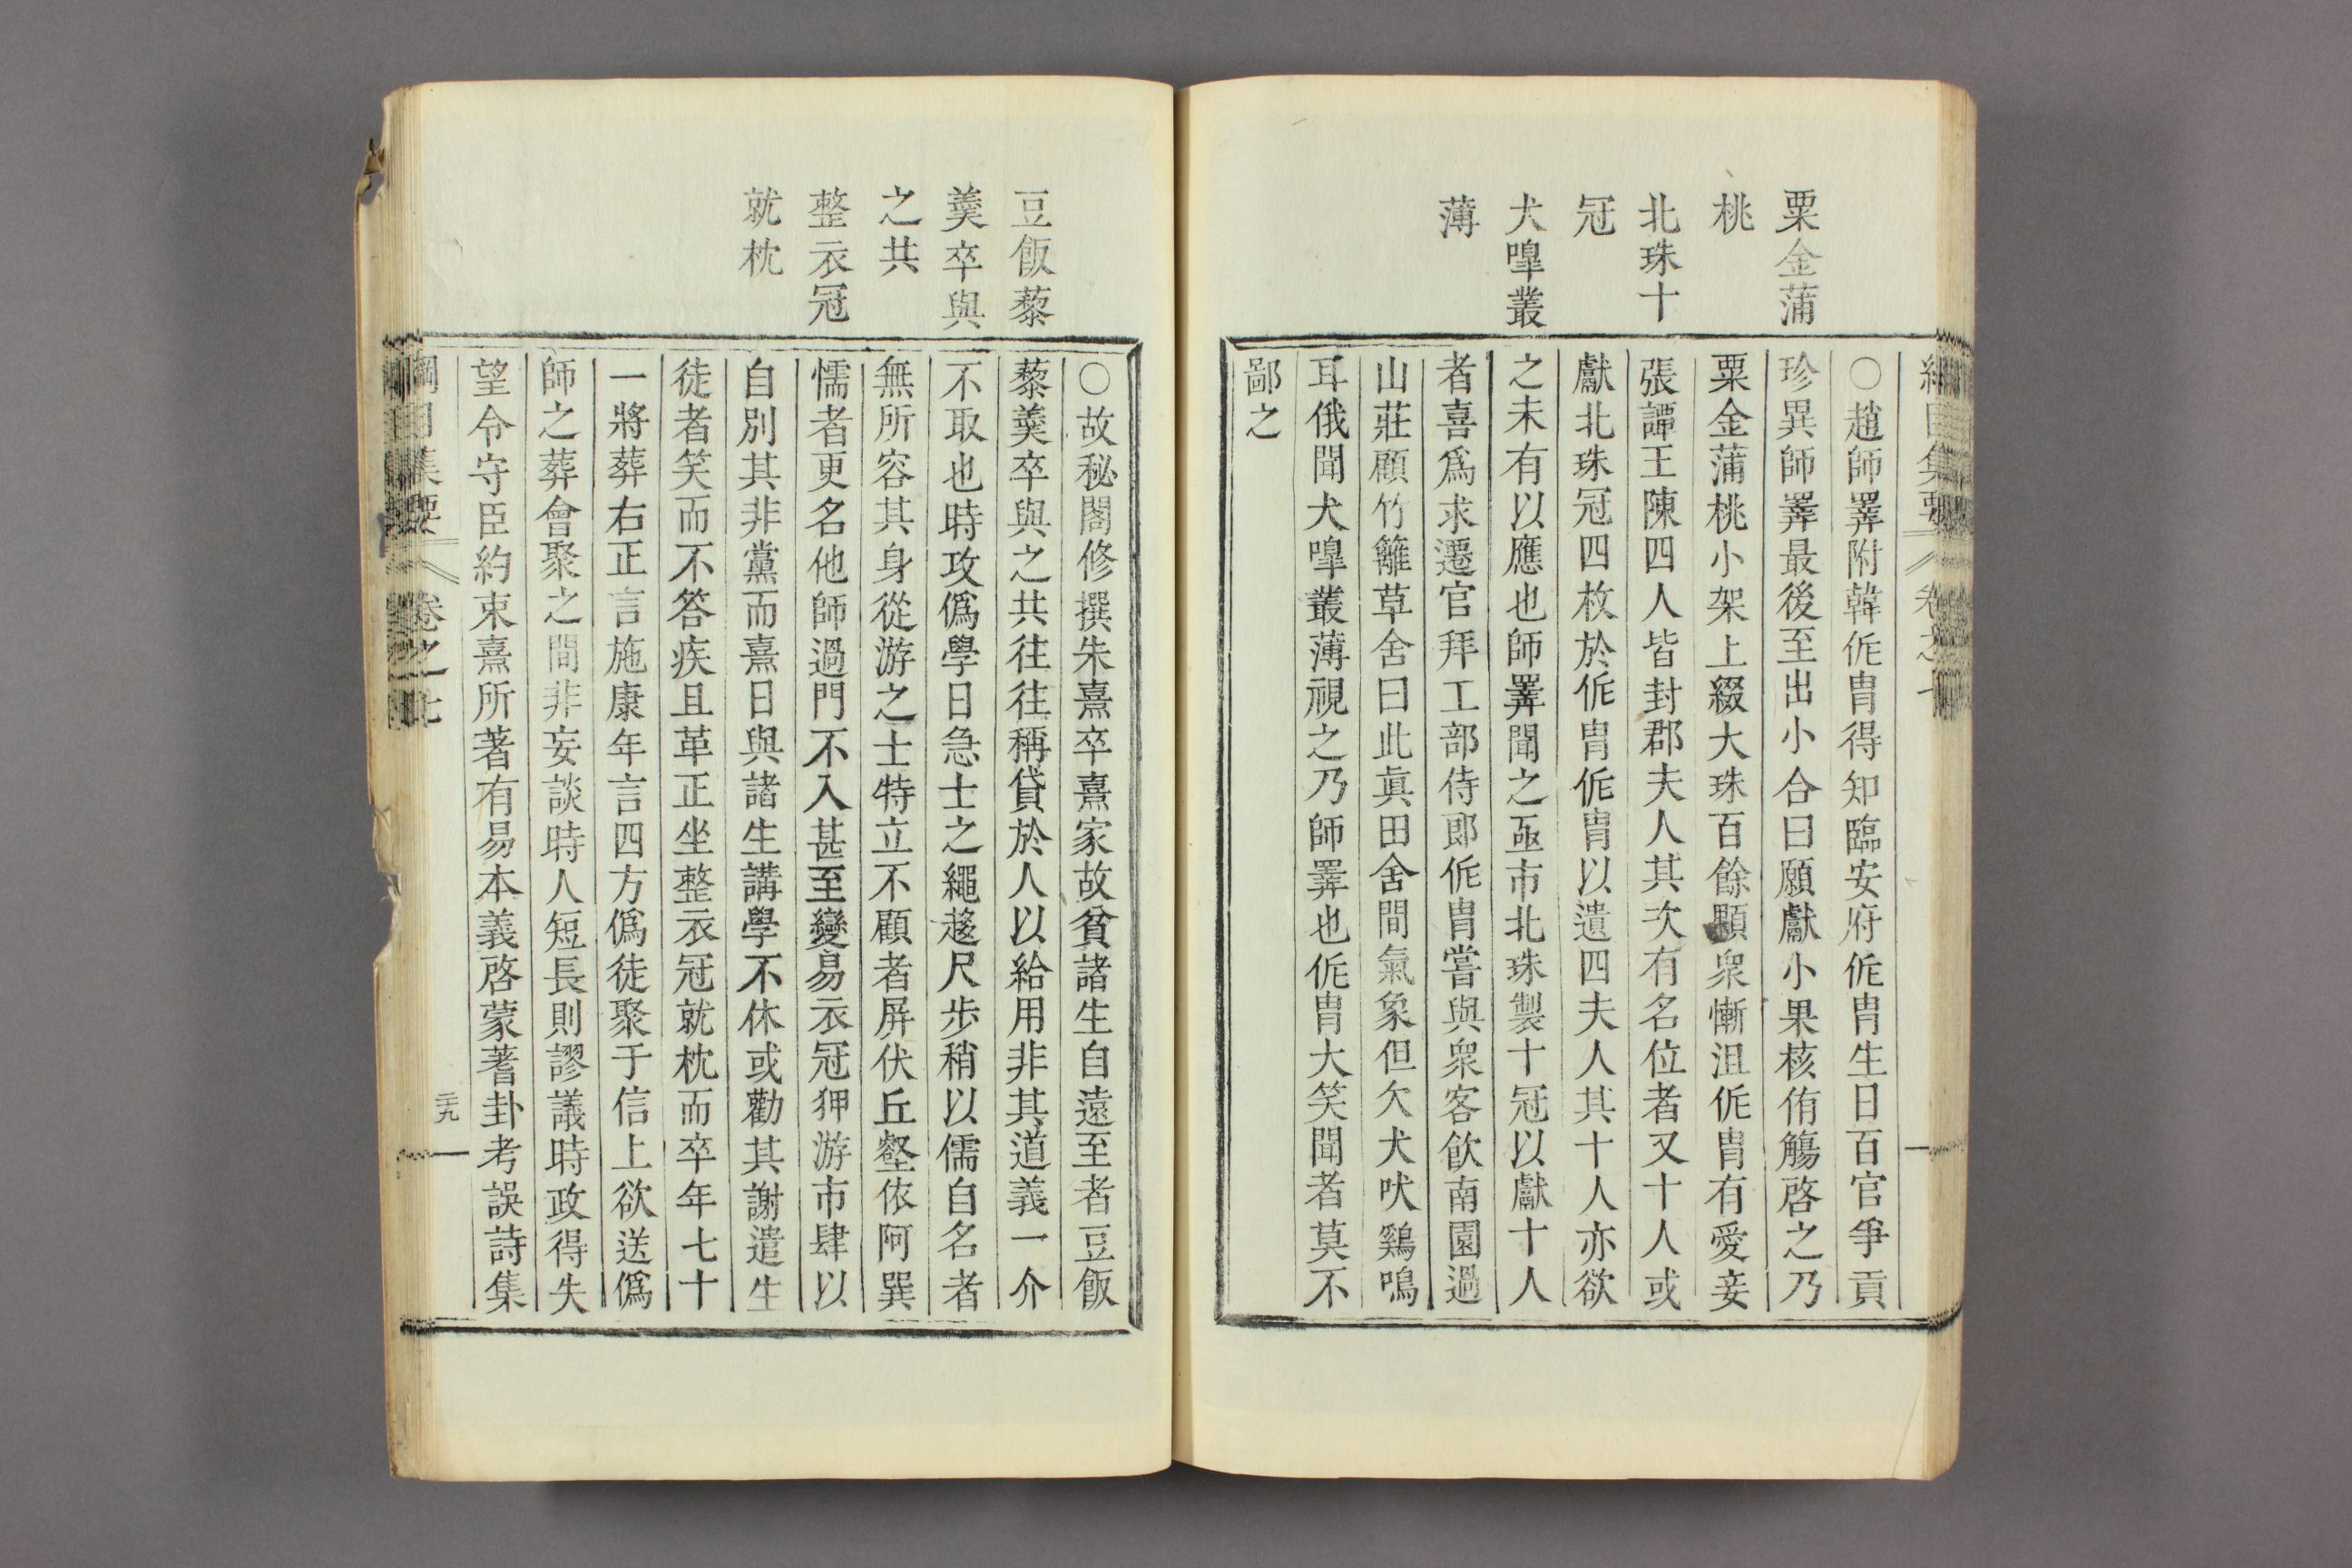 粟金蒲
桃
北珠十
冠
犬嘷叢
薄
○趙師𢍰附韓侂胄得知臨安府侂胄生日百官爭貢
珍異師𢍰最後至出小合曰願獻小果核侑觴啓之乃
粟金蒲桃小架上綴大珠百餘顆衆慚沮侂胄有愛妾
張譚王陳四人皆封郡夫人其次有名位者又十人或
獻北珠冠四枚於侂胄侂胄以遺四夫人其十人亦欲
之未有以應也師𢍰聞之亟市北珠製十冠以獻十人
者喜爲求遷官拜工部侍郎侂胄嘗與衆客飲南園過
山莊顧竹籬草舍曰此眞田舍間氣象但欠犬吠鷄鳴
耳俄聞犬嘷叢薄視之乃師𢍰也侂胄大笑聞者莫不
鄙之
豆飯藜
羹卒與
之共
整衣冠
就枕
○故秘閣修撰朱熹卒熹家故貧諸生自遠至者豆飯
藜羹卒與之共往往稱貸於人以給用非其道義一介
不取也時攻僞學日急士之繩趍尺步稍以儒自名者
無所容其身從游之士特立不顧者屏伏丘壑依阿巽
懦者更名他師過門不入甚至變易衣冠狎游市肆以
自別其非黨而熹日與諸生講學不休或勸其謝遣生
徒者笑而不答疾且革正坐整衣冠就枕而卒年七十
一將葬右正言施康年言四方僞徒聚于信上欲送僞
師之葬會聚之間非妄談時人短長則謬議時政得失
望令守臣約束熹所著有易本義啓蒙蓍卦考誤詩集
綱目集要 卷之廿
三十九